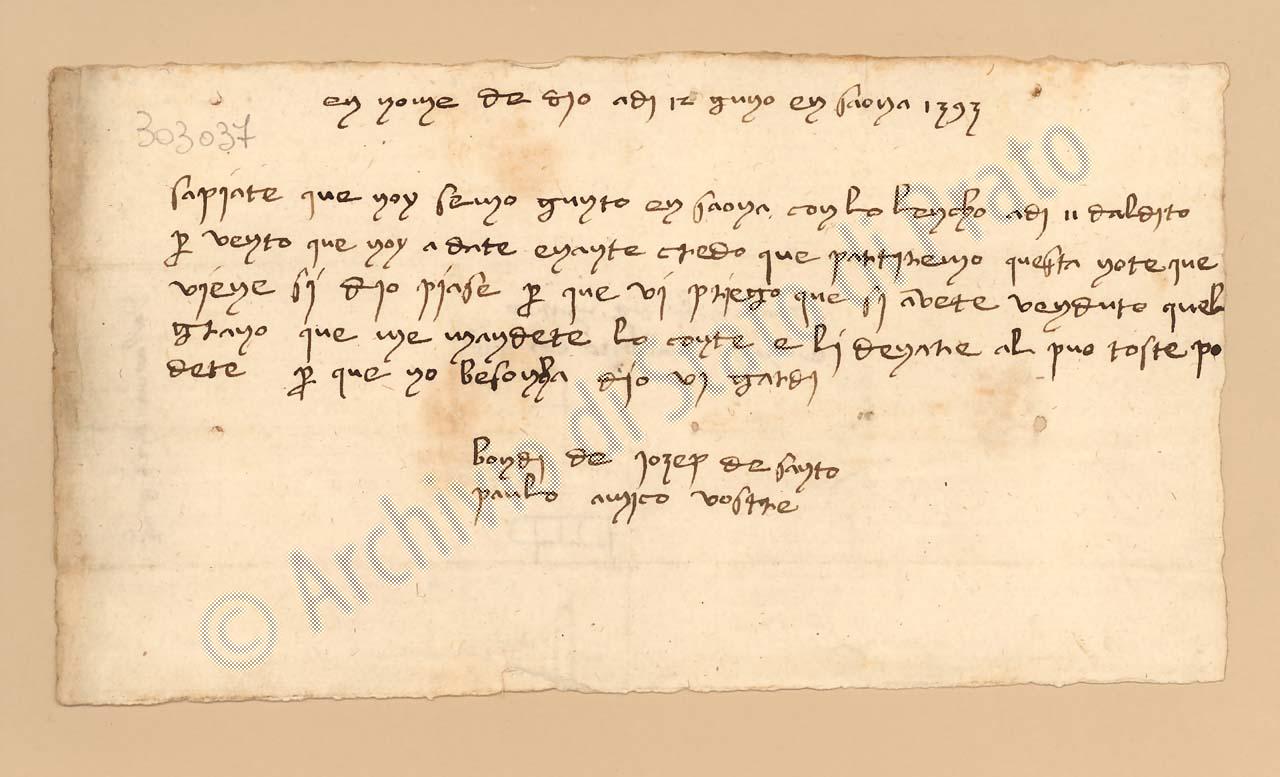 en nome de dio adi 12 guno en saona 1393
303037
sapiate que noy semo gunto en saona con lo lencho adi 11 daldito
p vento que noy a date enante credo que partiremo questa note que
viene si dio piase p que vi priego que si avete venduto quel
grano que me mandete lo conte e li denare al puo toste po
dete p que no besonha dio vi gardi
bondi de jozep de santo
paulo amico vostre
© Archivio di Stato di Prato